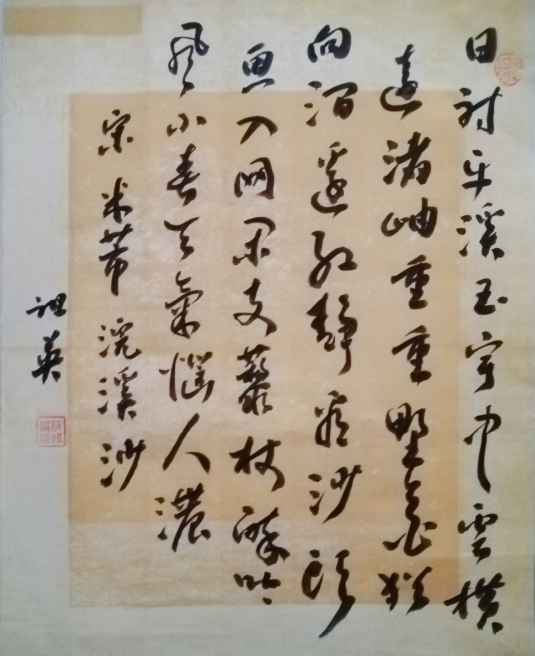 日射平溪玉宇中雲橫
遠渚岫重重野花犹
向澗邊紅靜看沙頭
魚入網閑支藜杖醉吟
風小春天氣惱人濃
宋米芾浣溪沙
祖英